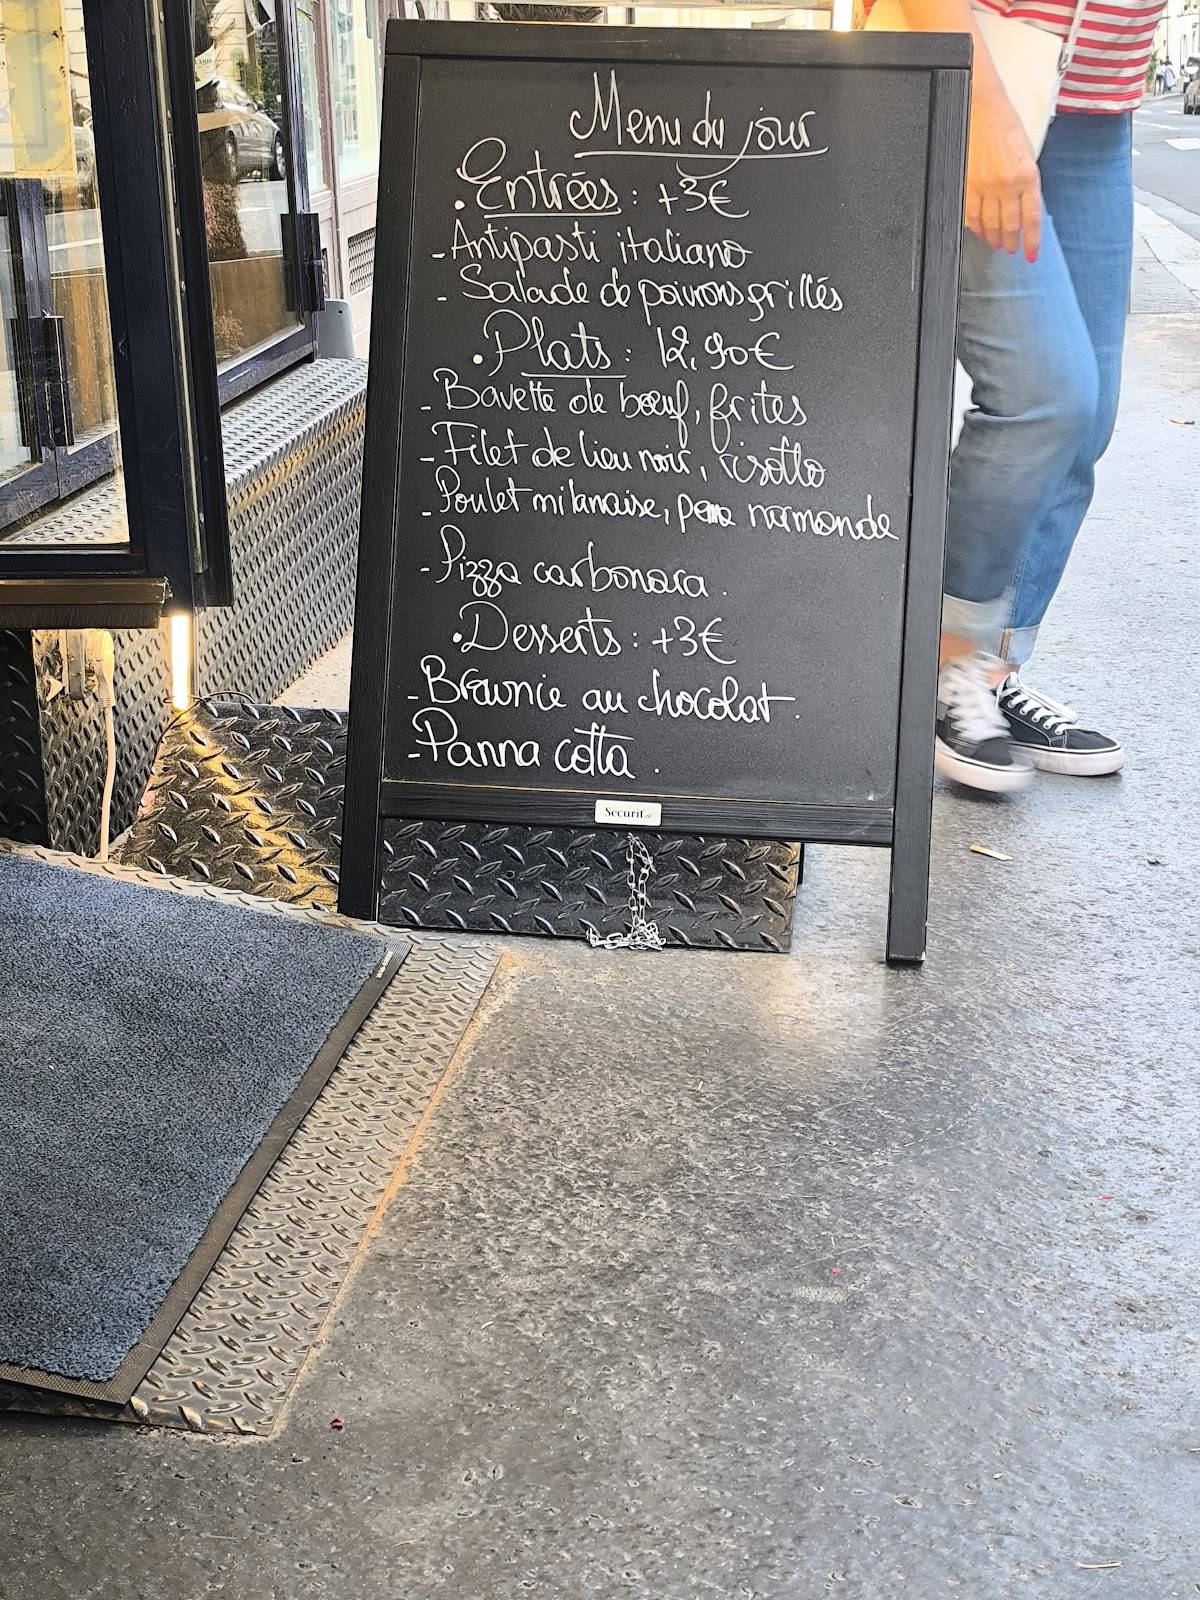 Menu du jour
• Entrées : +3€
- Antipasti italiano
- Salade de poivrons grillés
• Plats : 12,90€
- Bavette de bœuf, frites
- Filet de lieu noir, risotto
- Poulet milanaise, normande
- Pizza carbonara.
• Desserts : +3€
- Brownie au chocolat.
- Panna cotta.
Securit